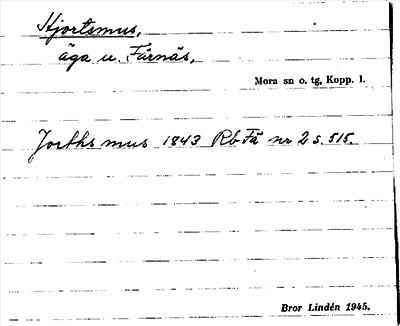 Hjortsmus,
äga u. Färnäs,
Mora sn o. tg, Kopp. l.
Jorths mus 1843 Rb Få nr 2 s. 515.
Bror Lindén 1945.